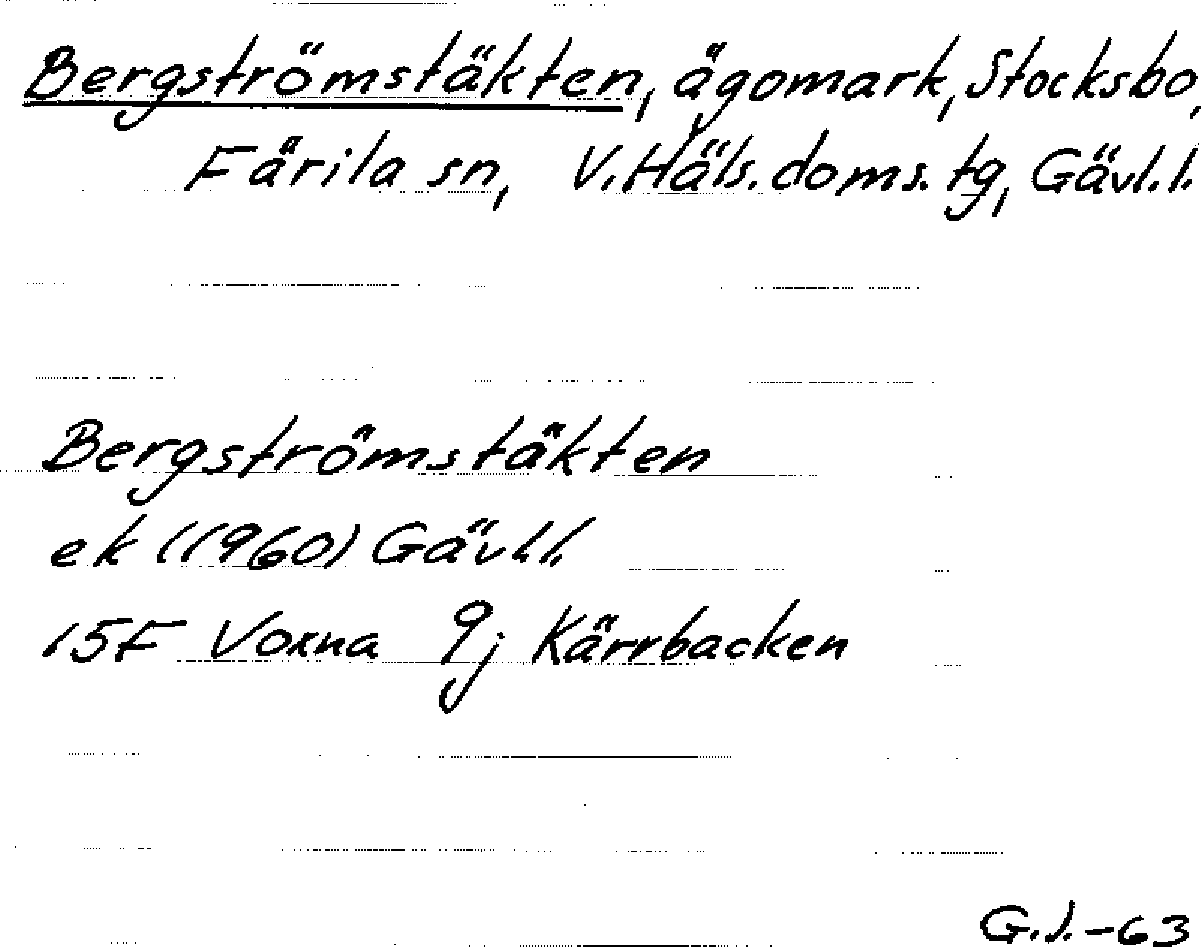 Bergströmstäkten, ägomark, Stocksbo,
Färila sn, V. Häls. doms. tg, Gävl. l.
Bergströmstäkten
ek (1960) Gävl. l.
15F Voxna 9j Kärrbacken
G.J.-63